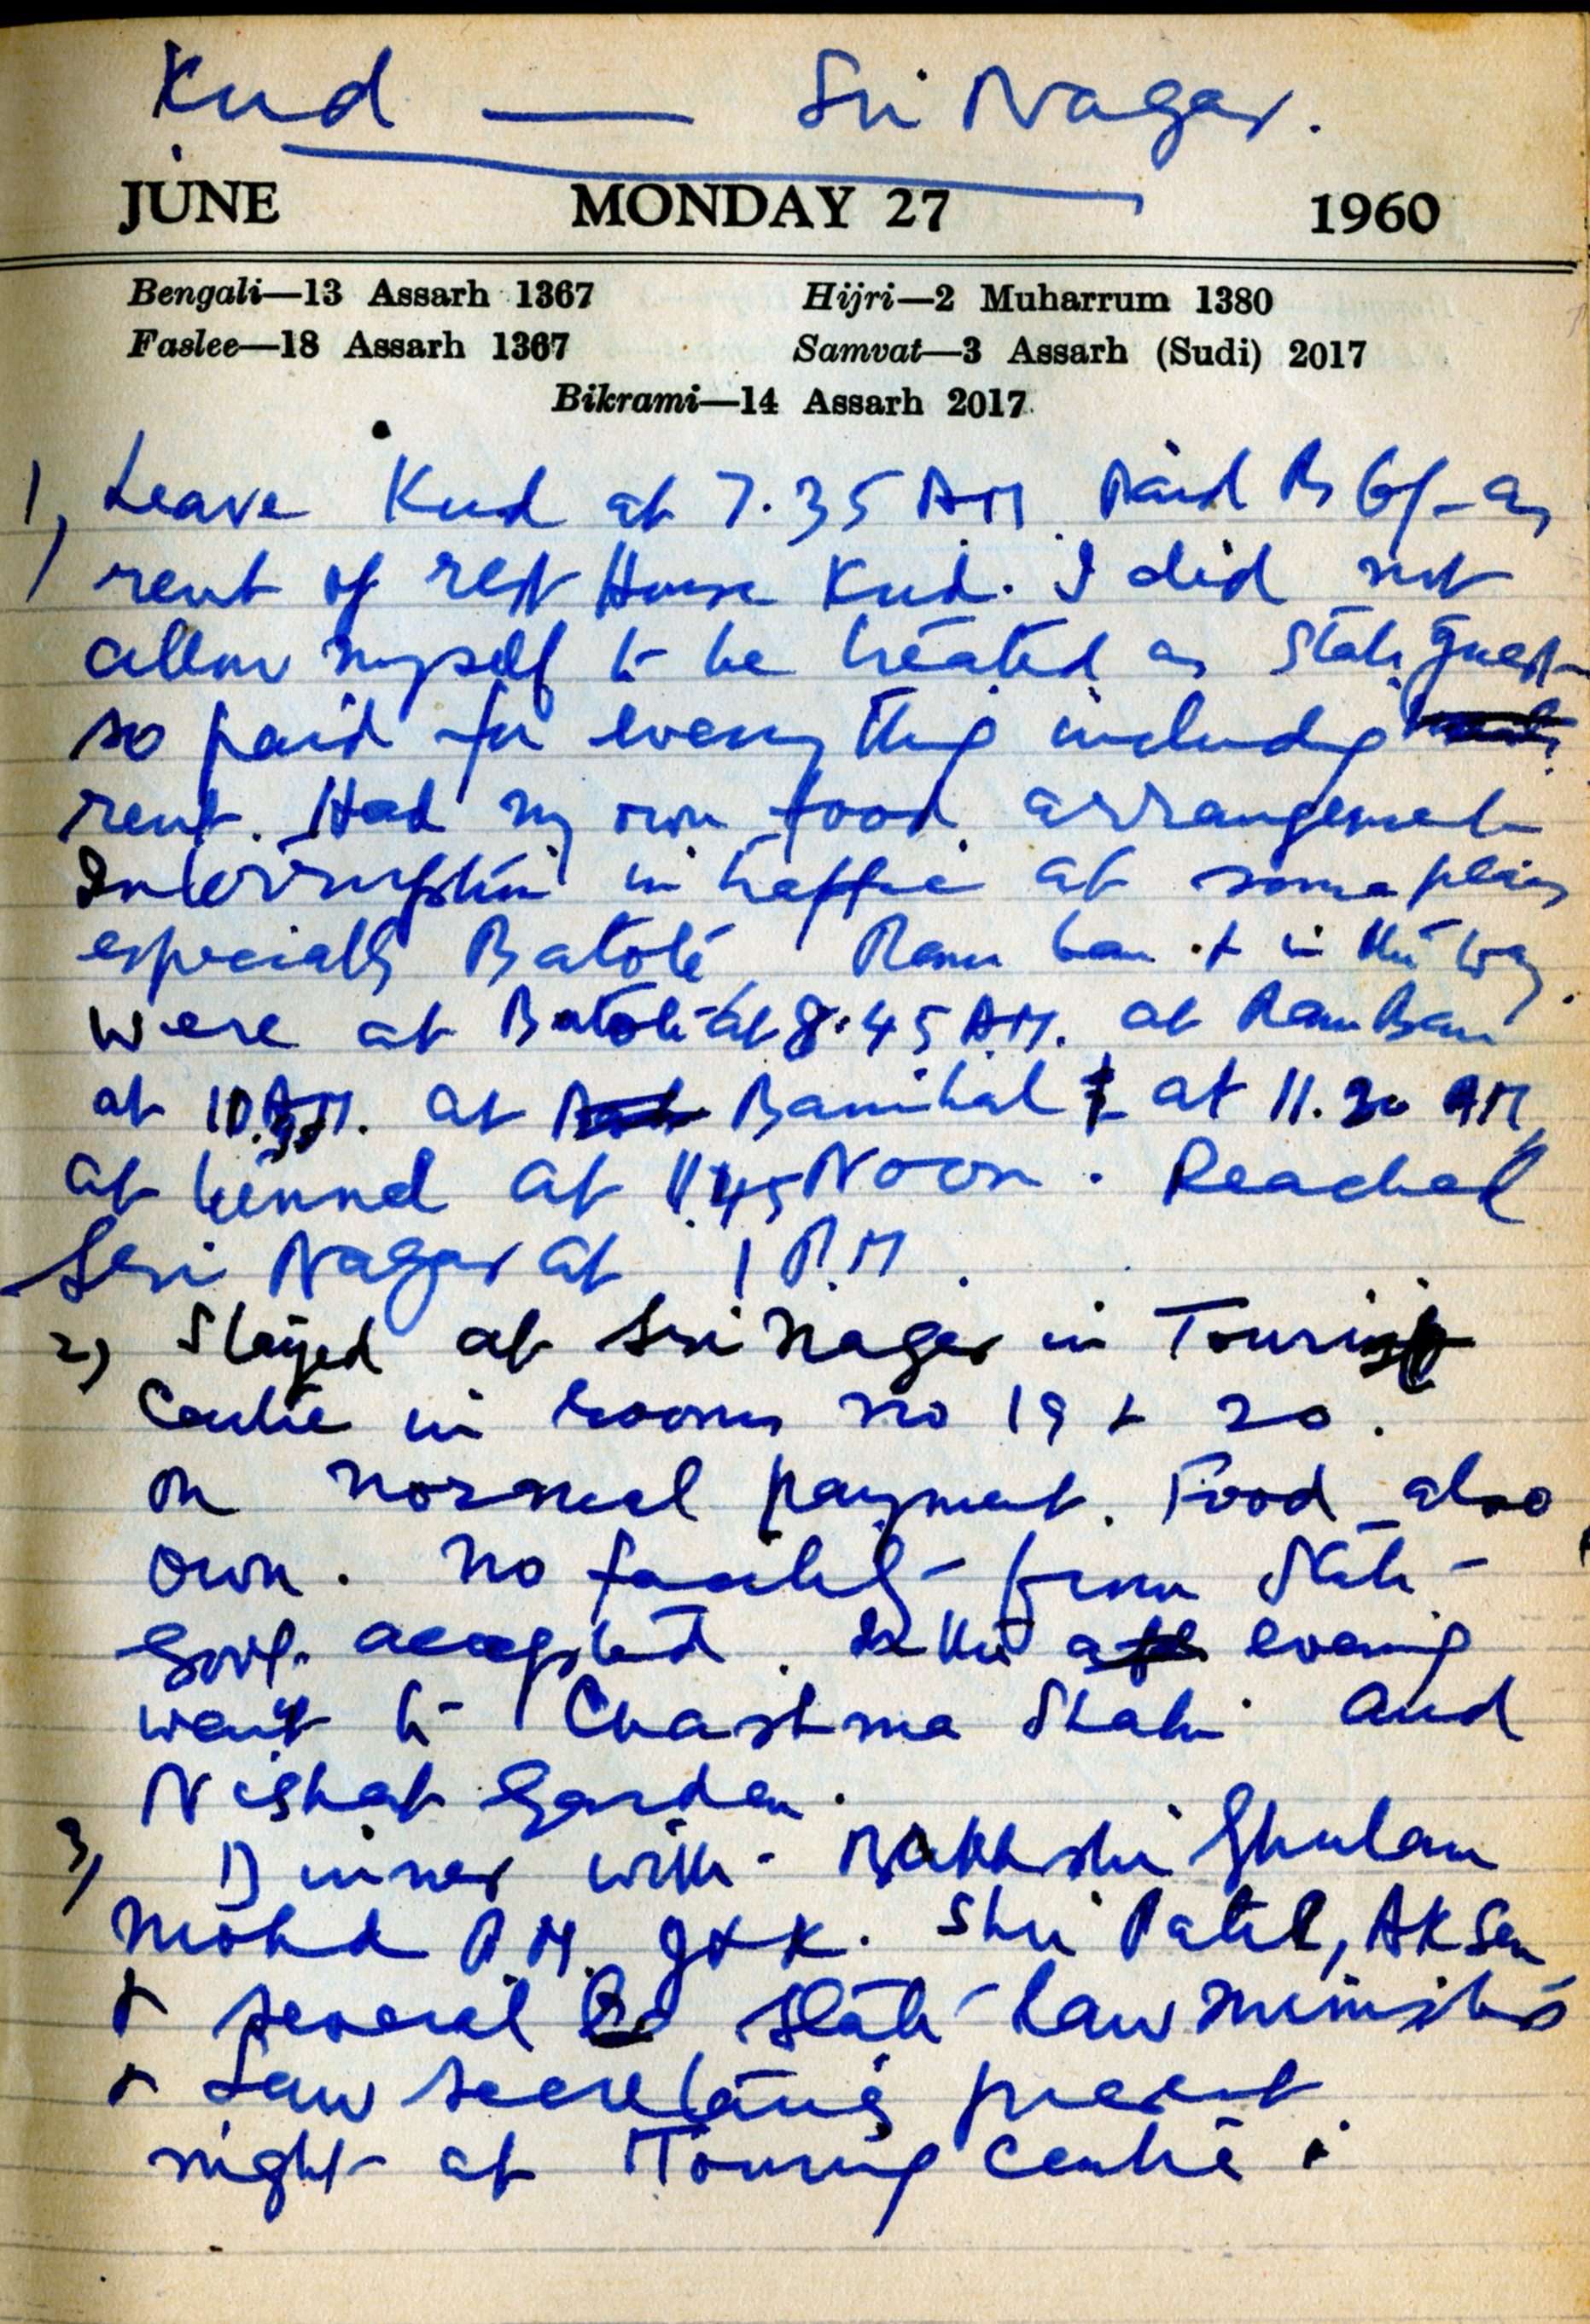 Kud — Sri Nagar.
JUNE MONDAY 27 1960
Bengali—13 Assarh 1367 Hijri—2 Muharrum 1380
Faslee—18 Assarh 1367 Samvat—3 Assarh (Sudi) 2017
Bikrami—14 Assarh 2017
1, Leave Kud at 7.35 AM. Paid Rs 6/- as
rent of rest House Kud. I did not
allow myself to be treated as State guest
so paid for every thing including
rent. Had my own food arrangement
Interruption in traffic at some places
especially Batote, Ram ban & in the way.
were at Batote at 8.45 AM. at Ram Ban
at 10 AM. at Banihal at 11.30 AM,
at tunnel at 11.45 Noon. Reached
Sri Nagar at 1 P.M.
2) Stayed at Sri Nagar in Tourist
Centre in rooms no 19 & 20.
on normal payment. Food also
own. No facility from State
Govt. accepted. In the evening
went to Chashma Shahi and
Nishat Garden.
3, Dinner with Bakhshi Ghulam
Mohd P.M. J & K. Shri Patil, AK Sen
& several State Law ministers
& Law secretaries present.
night at Touring Centre.